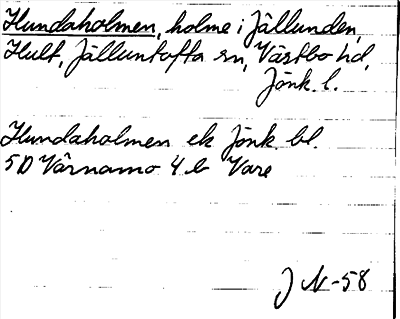 Hundaholmen, holme i Jällunden,
Hult, Jälluntofta sn, Västbo hd,
Jönk. l.
Hundaholmen ek Jönk. bl.
5D Värnamo 4 b Vare
J N-58